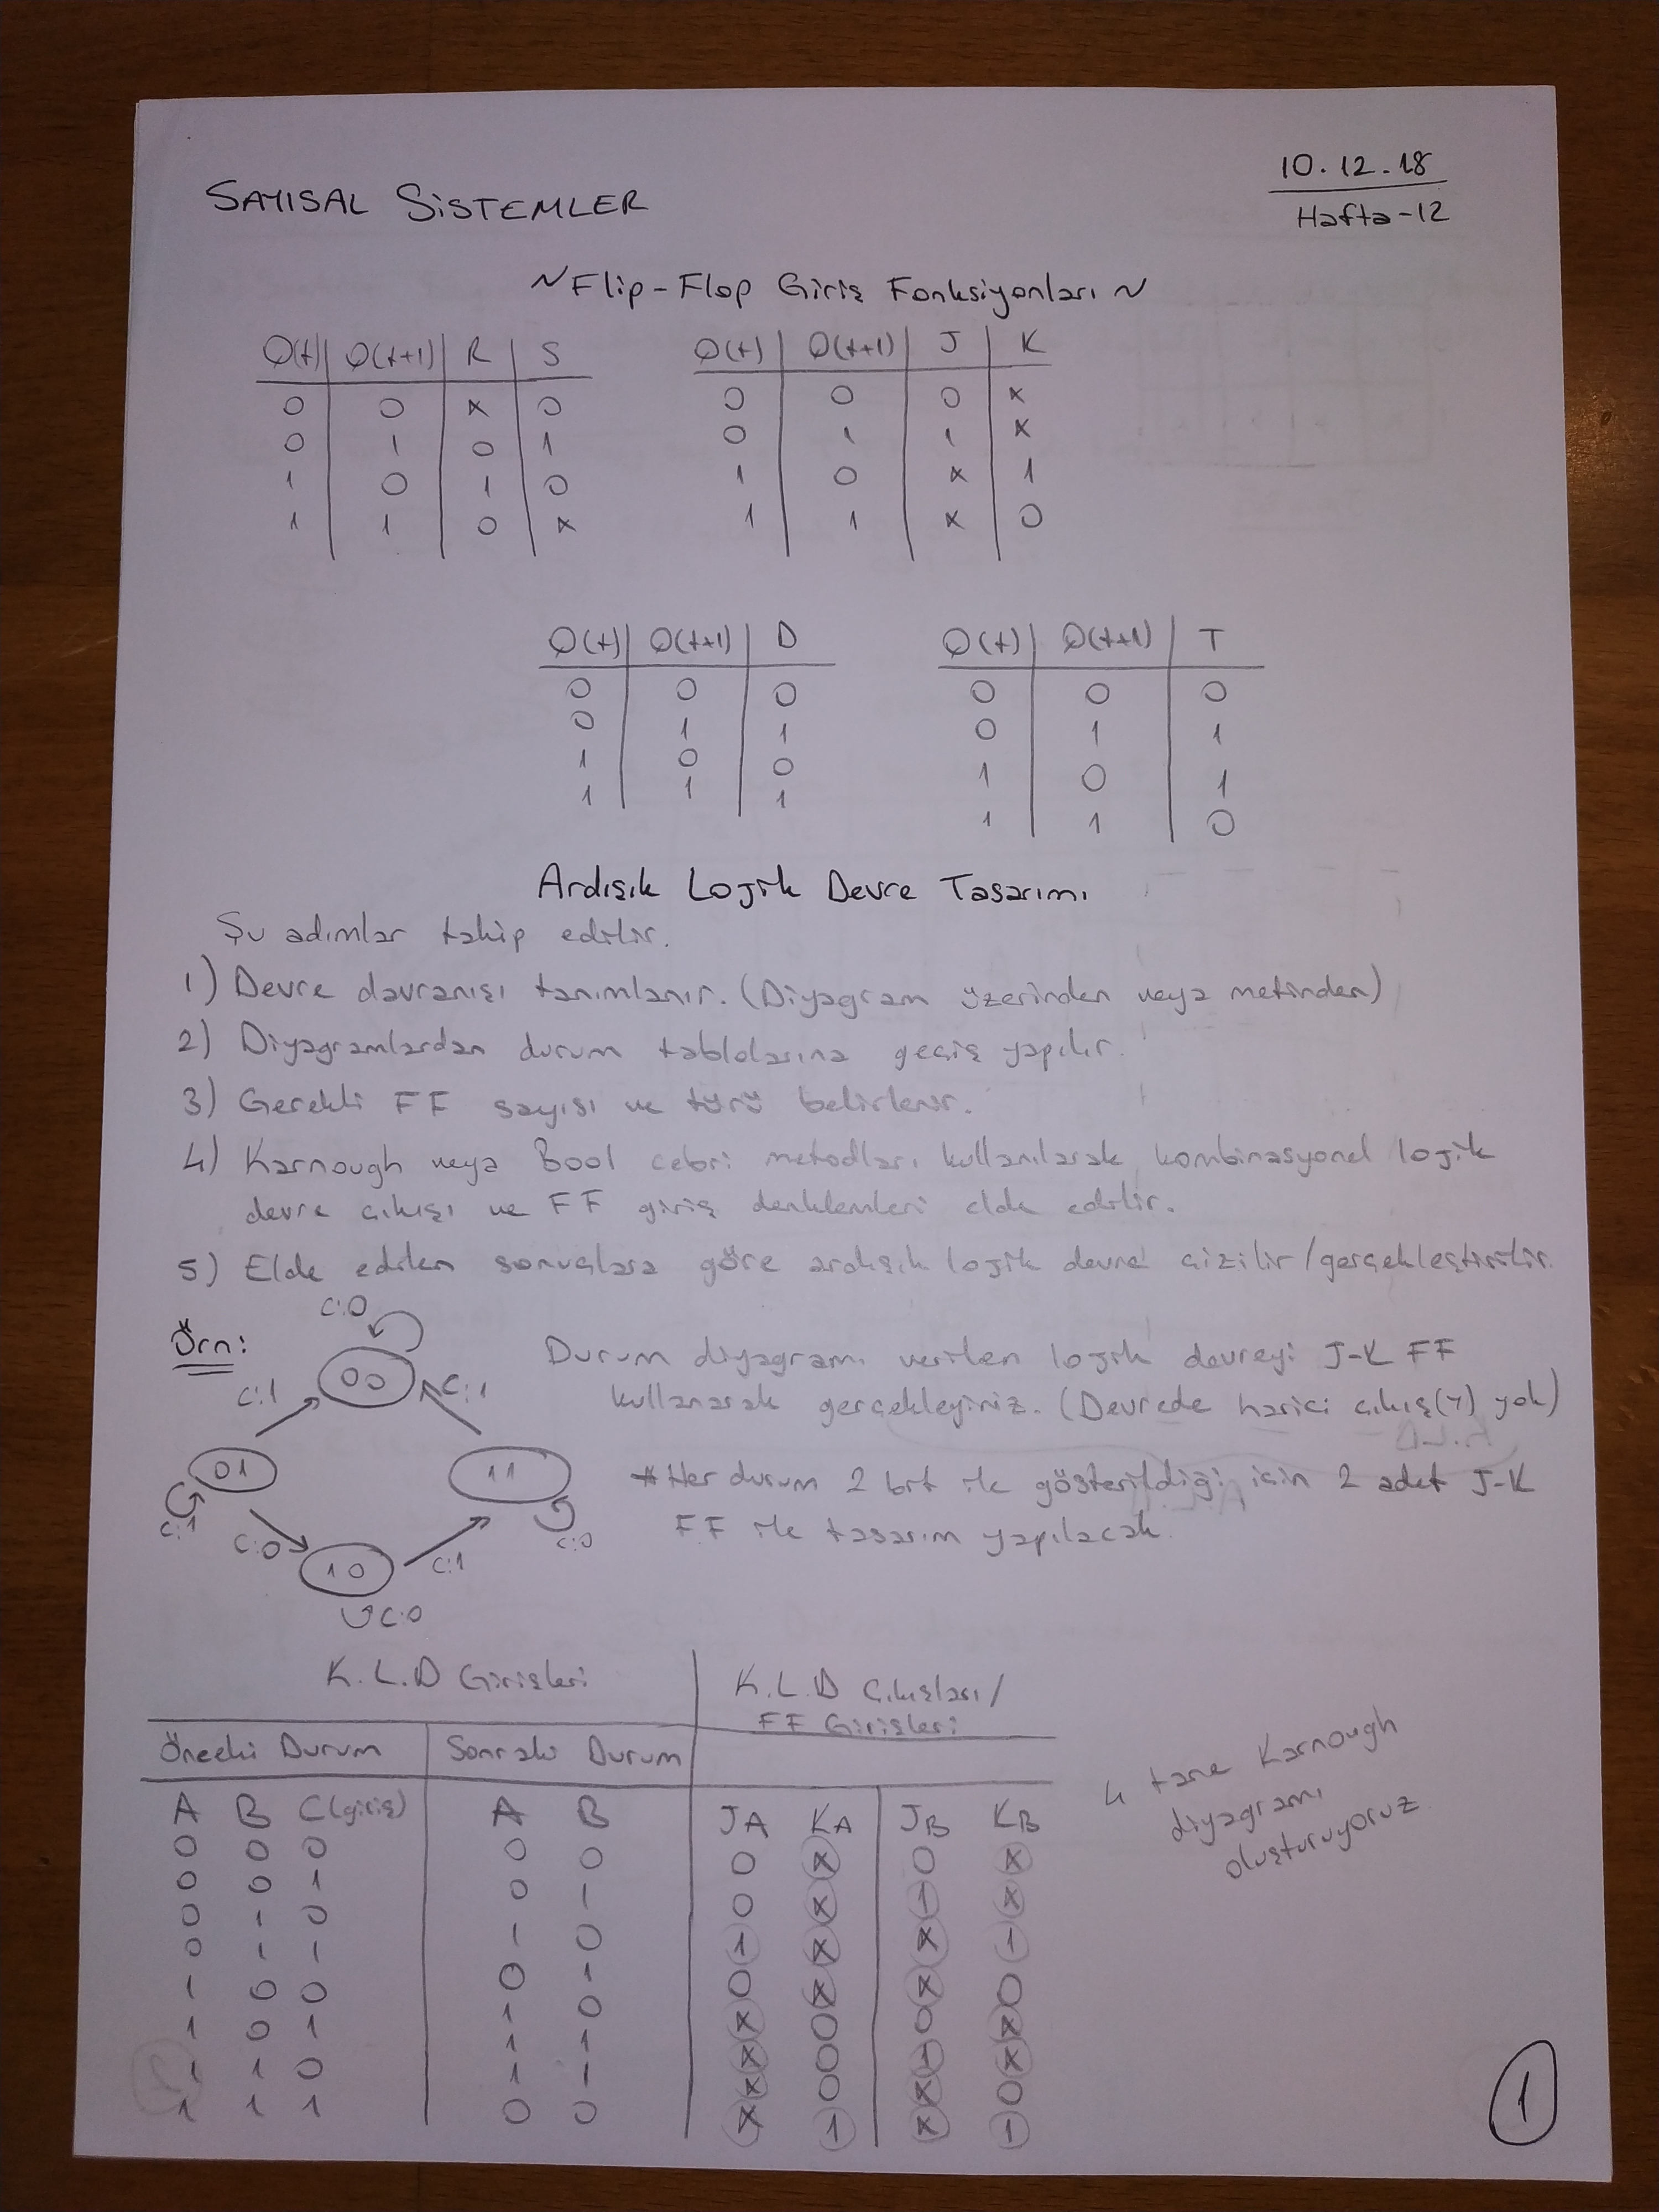 SAYISAL SİSTEMLER
10.12.18
Hafta-12
~Flip-Flop Giriş Fonksiyonları~
Q(t) Q(t+1) R S
0 0 x 0
0 1 0 1
1 0 1 0
1 1 0 x
Q(t) Q(t+1) J K
0 0 0 x
0 1 1 x
1 0 x 1
1 1 x 0
Q(t) Q(t+1) D
0 0 0
0 1 1
1 0 0
1 1 1
Q(t) Q(t+1) T
0 0 0
0 1 1
1 0 1
1 1 0
Ardışık Lojik Devre Tasarımı
Şu adımlar takip edilir.
1) Devre davranışı tanımlanır. (Diyagram üzerinden veya metinden)
2) Diyagramlardan durum tablolarına geçiş yapılır.
3) Gerekli FF sayısı ve türü belirlenir.
4) Karnough veya Bool cebri metodları kullanılarak kombinasyonel lojik
devre çıkışı ve FF giriş denklemleri elde edilir.
5) Elde edilen sonuçlara göre ardışık lojik devre çizilir/gerçekleştirilir
Örn:
c:0
00
c:1
c:1
01
c:1
11
c:0
c:0
10
c:1
c:0
Durum diyagramı verilen lojik devreyi J-K FF
kullanarak gerçekleyiniz. (Devrede harici çıkış(Y) yok)
*Her durum 2 bit ile gösterildiği için 2 adet J-K
FF ile tasarım yapılacak.
K.L.D Girişleri
K.L.D Çıkışları/
FF Girişleri
Önceki Durum Sonraki Durum
A B C(giriş) A B JA KA JB KB
0 0 0 0 0 0 x 0 x
0 0 1 0 1 0 x 1 x
0 1 0 1 0 1 x x 1
0 1 1 0 1 0 x x 0
1 0 0 1 0 x 0 0 x
1 0 1 1 1 x 0 1 x
1 1 0 1 1 x 0 x 0
1 1 1 0 0 x 1 x 1
4 tane Karnough
diyagramı
oluşturuyoruz
1